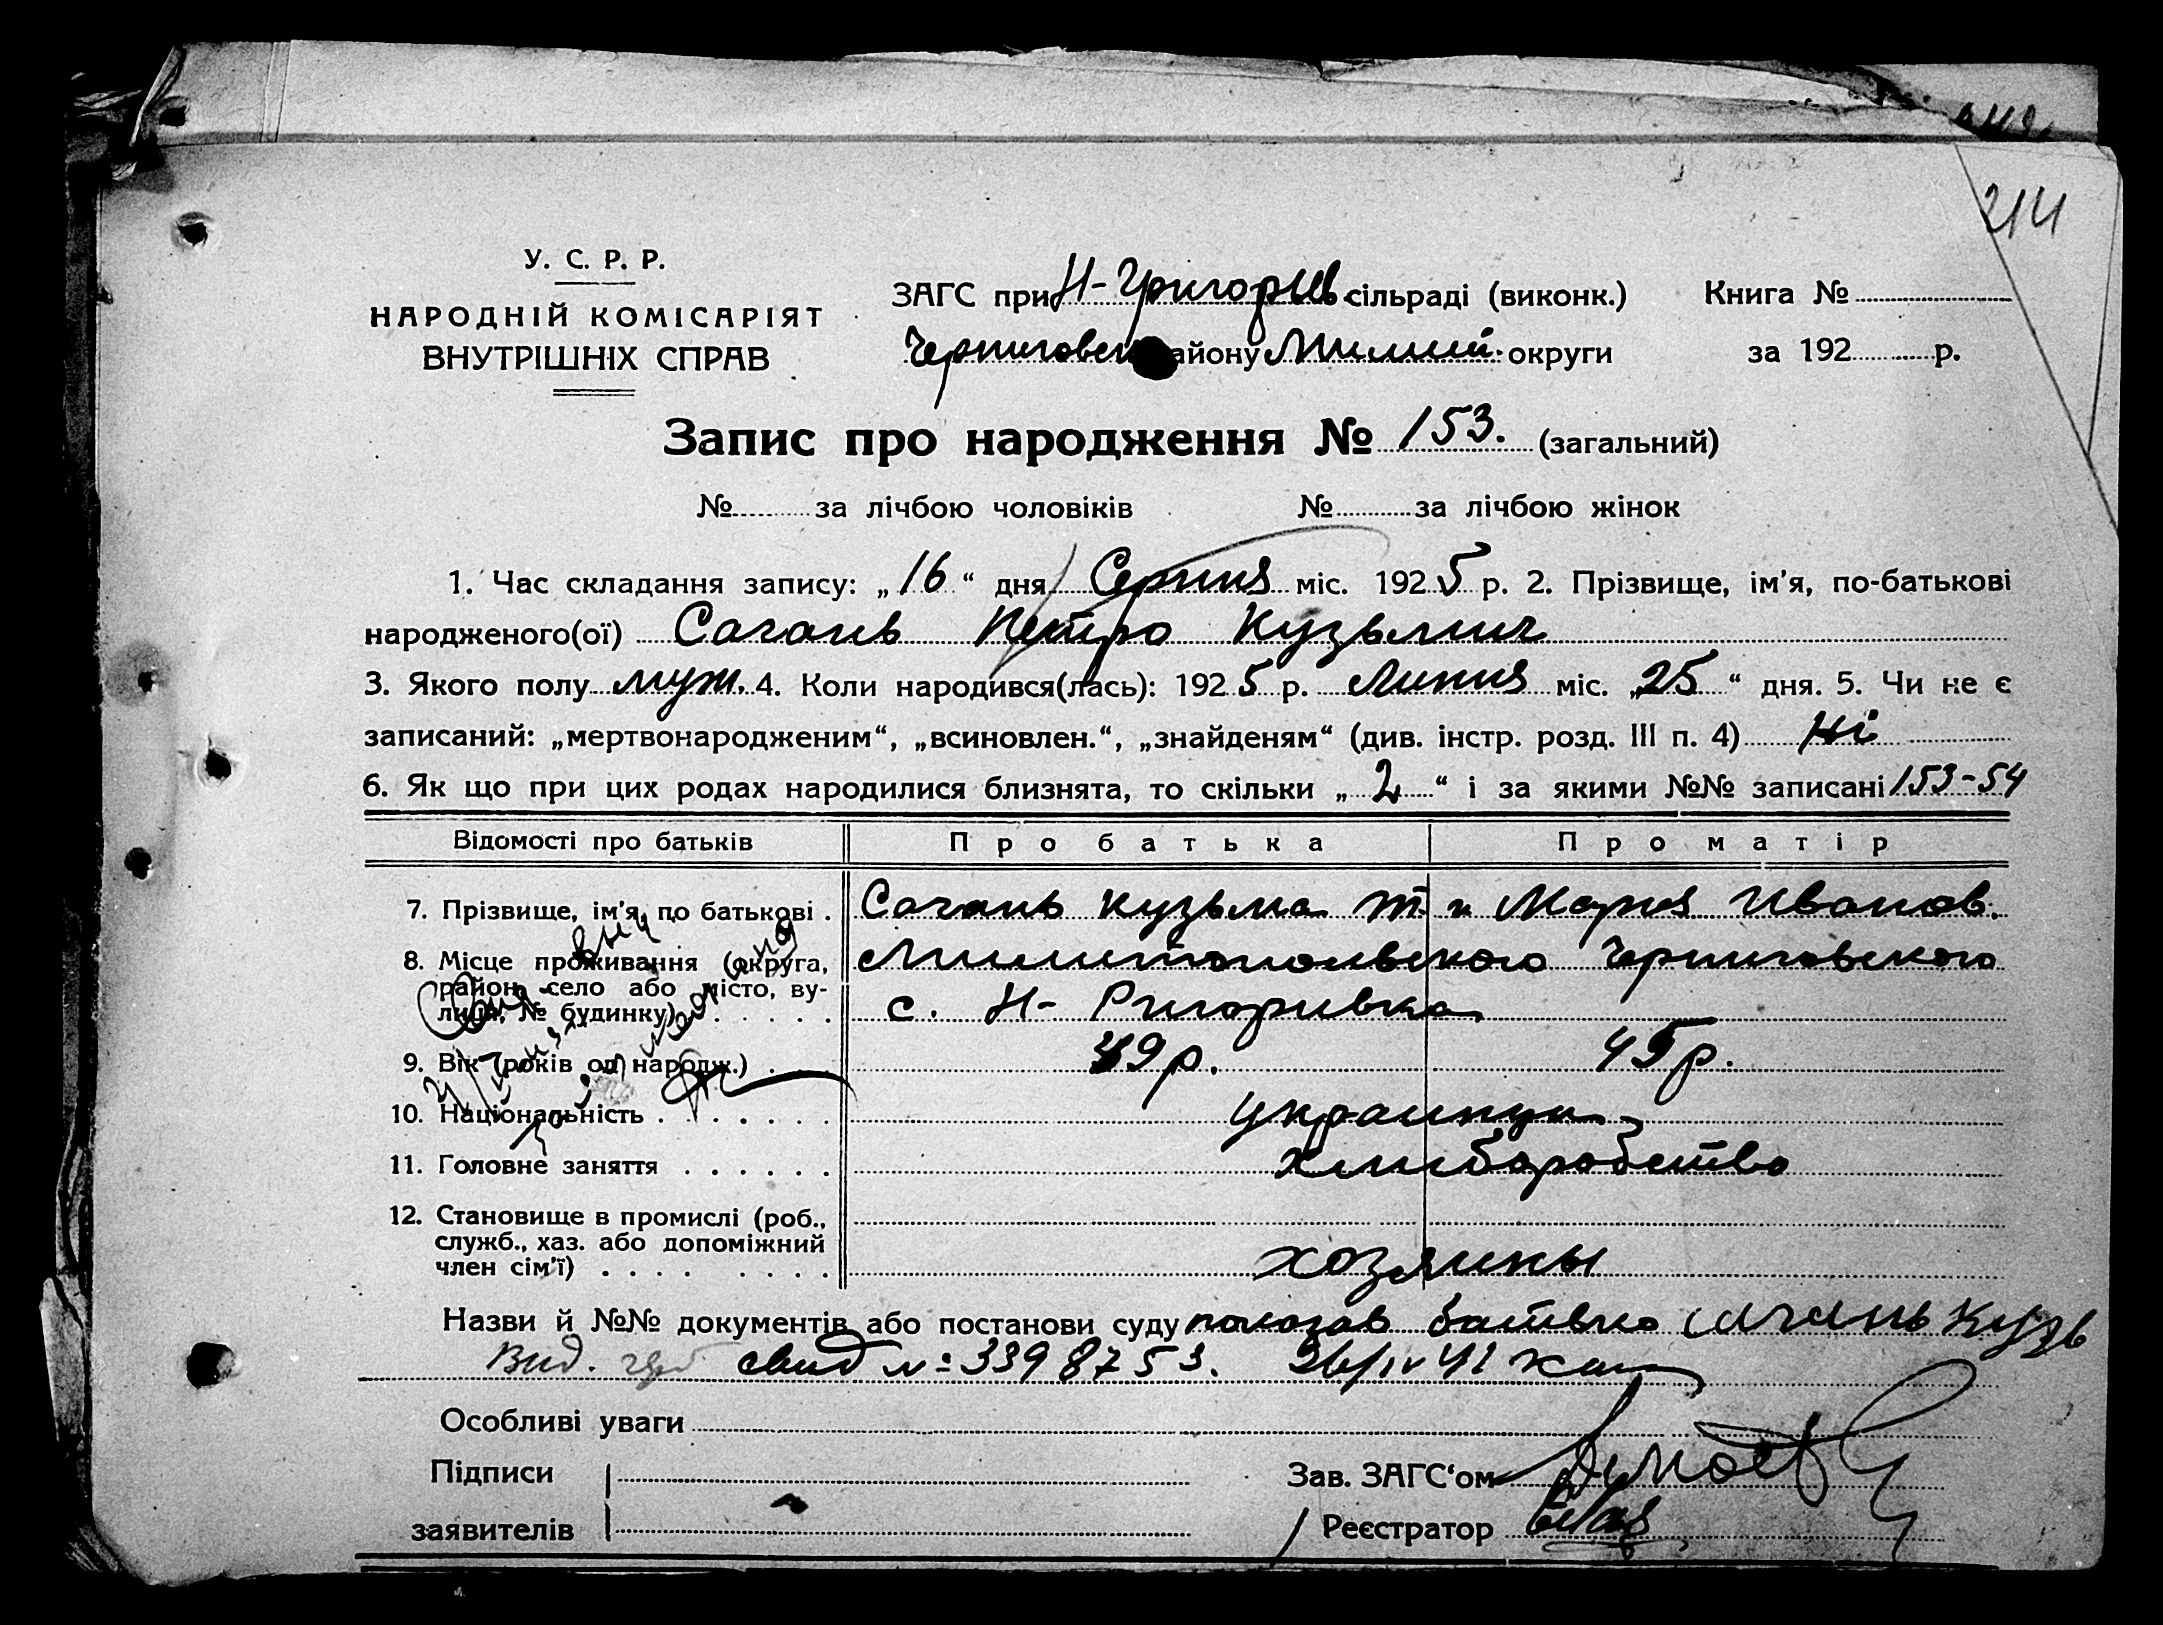 214
У. С. Р. Р.
НАРОДНІЙ КОМІСАРІЯТ
ВНУТРІШНІХ СПРАВ
ЗАГС при Н-Григорів. сільраді (виконк.)
Черниговск айону Милит. округи
Книга №
за 192 р.
Запис про народження № 153. (загальний)
№ за лічбою чоловіків № за лічбою жінок
1. Час складання запису: „16“ дня Серпня міс. 1925 р. 2. Прізвище, ім'я, по-батькові
народженого(ої) Сагань Петро Кузьмич
3. Якого полу муж. 4. Коли народився(лась): 1925 р. Липня міс. „25“ дня. 5. Чи не є
записаний: „мертвонародженим“, „всиновлен.“, „знайденям“ (див. інстр. розд. III п. 4) Ні
6. Як що при цих родах народилися близнята, то скільки „2“ і за якими №№ записані 153-54
Відомості про батьків Про батька Про матір
7. Прізвище, ім'я, по батькові . Сагань Кузьма Т. и Мария Иванов.
8. Місце проживання (округа, Милитопольского Черниговского
район, село або місто, ву-
лиця, № будинку) . . . . . с. Н- Ригоривка
9. Вік (років од народж.) . . . 49 р. 45 р.
10. Національність . . . . . . . украинци
11. Головне заняття . . . . . . хлиборобство
12. Становище в промислі (роб.,
служб., хаз. або допоміжний
член сім'ї) . . . . . . . . хозяины
Назви й №№ документів або постанови суду показав батько Сагань Кузь
Вид. свид № 3398753. 26/IV 41
Особливі уваги
Підписи
заявителів
Зав. ЗАГС‘ом
Реєстратор